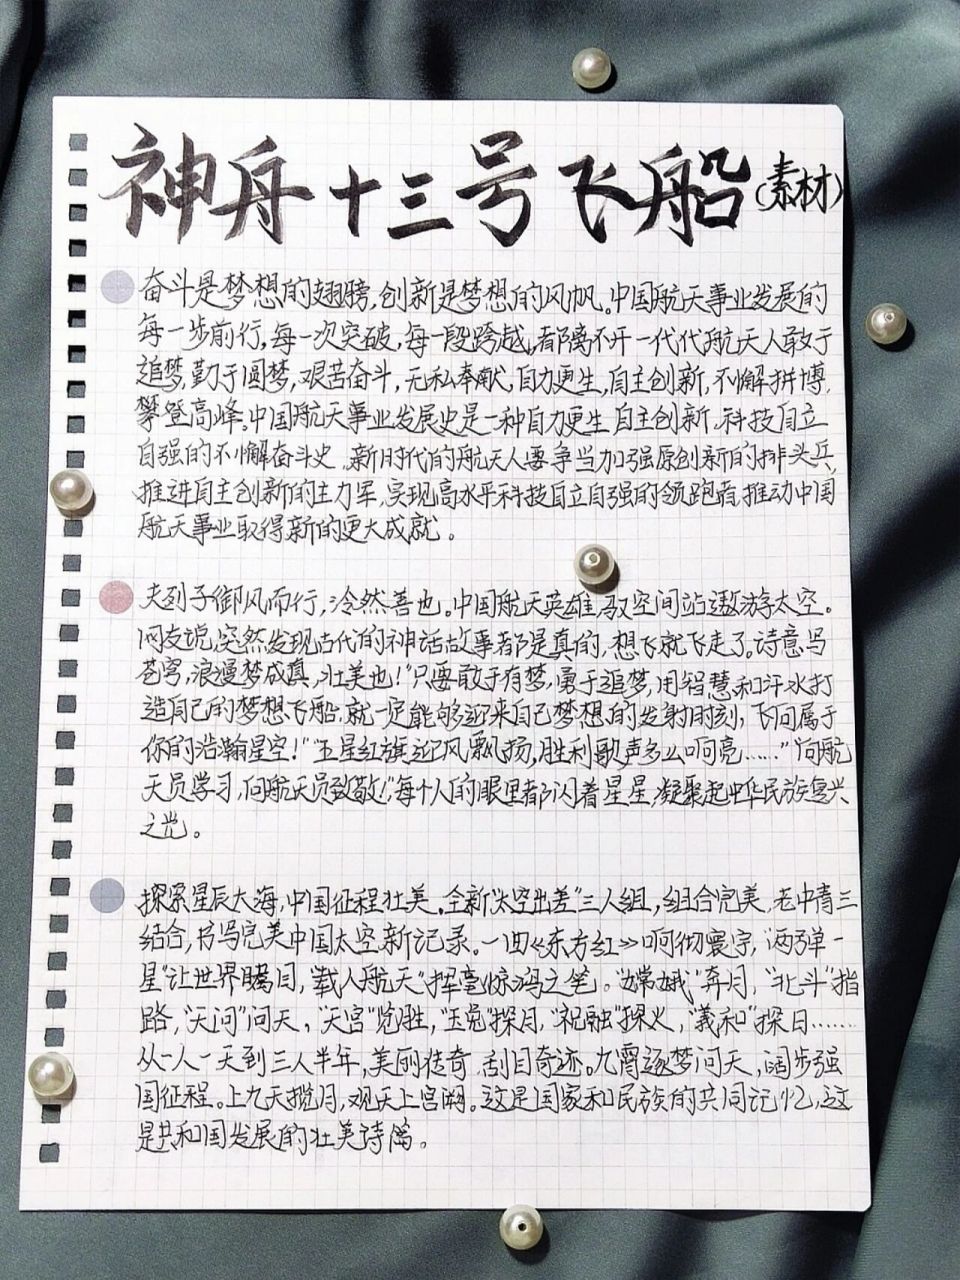 神舟十三号飞船(素材)
奋斗是梦想的翅膀,创新是梦想的风帆。中国航天事业发展的
每一步前行,每一次突破,每一段跨越,都离不开一代代航天人敢于
追梦,勤于圆梦,艰苦奋斗,无私奉献,自力更生,自主创新,不懈拼博,
攀登高峰。中国航天事业发展史是一种自力更生,自主创新,科技自立
自强的不懈奋斗史,新时代的航天人要争当加强原创新的排头兵、
推进自主创新的主力军,实现高水平科技自立自强的领跑者,推动中国
航天事业取得新的更大成就。
夫列子御风而行,泠然善也。中国航天英雄,驭空间站遨游太空。
网友说,突然发现古代的神话故事都是真的,想飞就飞走了。诗意写
苍穹,浪漫梦成真,壮美也!"只要敢于有梦,勇于追梦,用智慧和汗水打
造自己的梦想飞船,就一定能够迎来自己梦想的发射时刻,飞向属于
你的浩瀚星空!""五星红旗迎风飘扬,胜利歌声多么响亮……""向航
天员学习,向航天员致敬!"每个人的眼里都闪着星星,凝聚起中华民族复兴
之光。
探索星辰大海,中国征程壮美。全新"太空出差"三人组,组合完美,老中青三
结合,书写完美中国太空新记录。一曲《东方红》响彻寰宇,"两弹一
星"让世界瞩目,"载人航天"挥毫惊鸿之笔。"嫦娥"奔月,"北斗"指
路,"天问"问天,"天宫"览胜,"玉兔"探月,"祝融"探火,"羲和"探日……
从一人一天到三人半年,美丽传奇,刮目奇迹。九霄逐梦问天,阔步强
国征程。上九天揽月,观天上宫阙。这是国家和民族的共同记忆,这
是共和国发展的壮美诗篇。